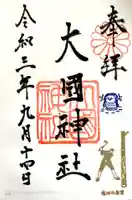 奉拝
大國神社
令和三年九月十四日